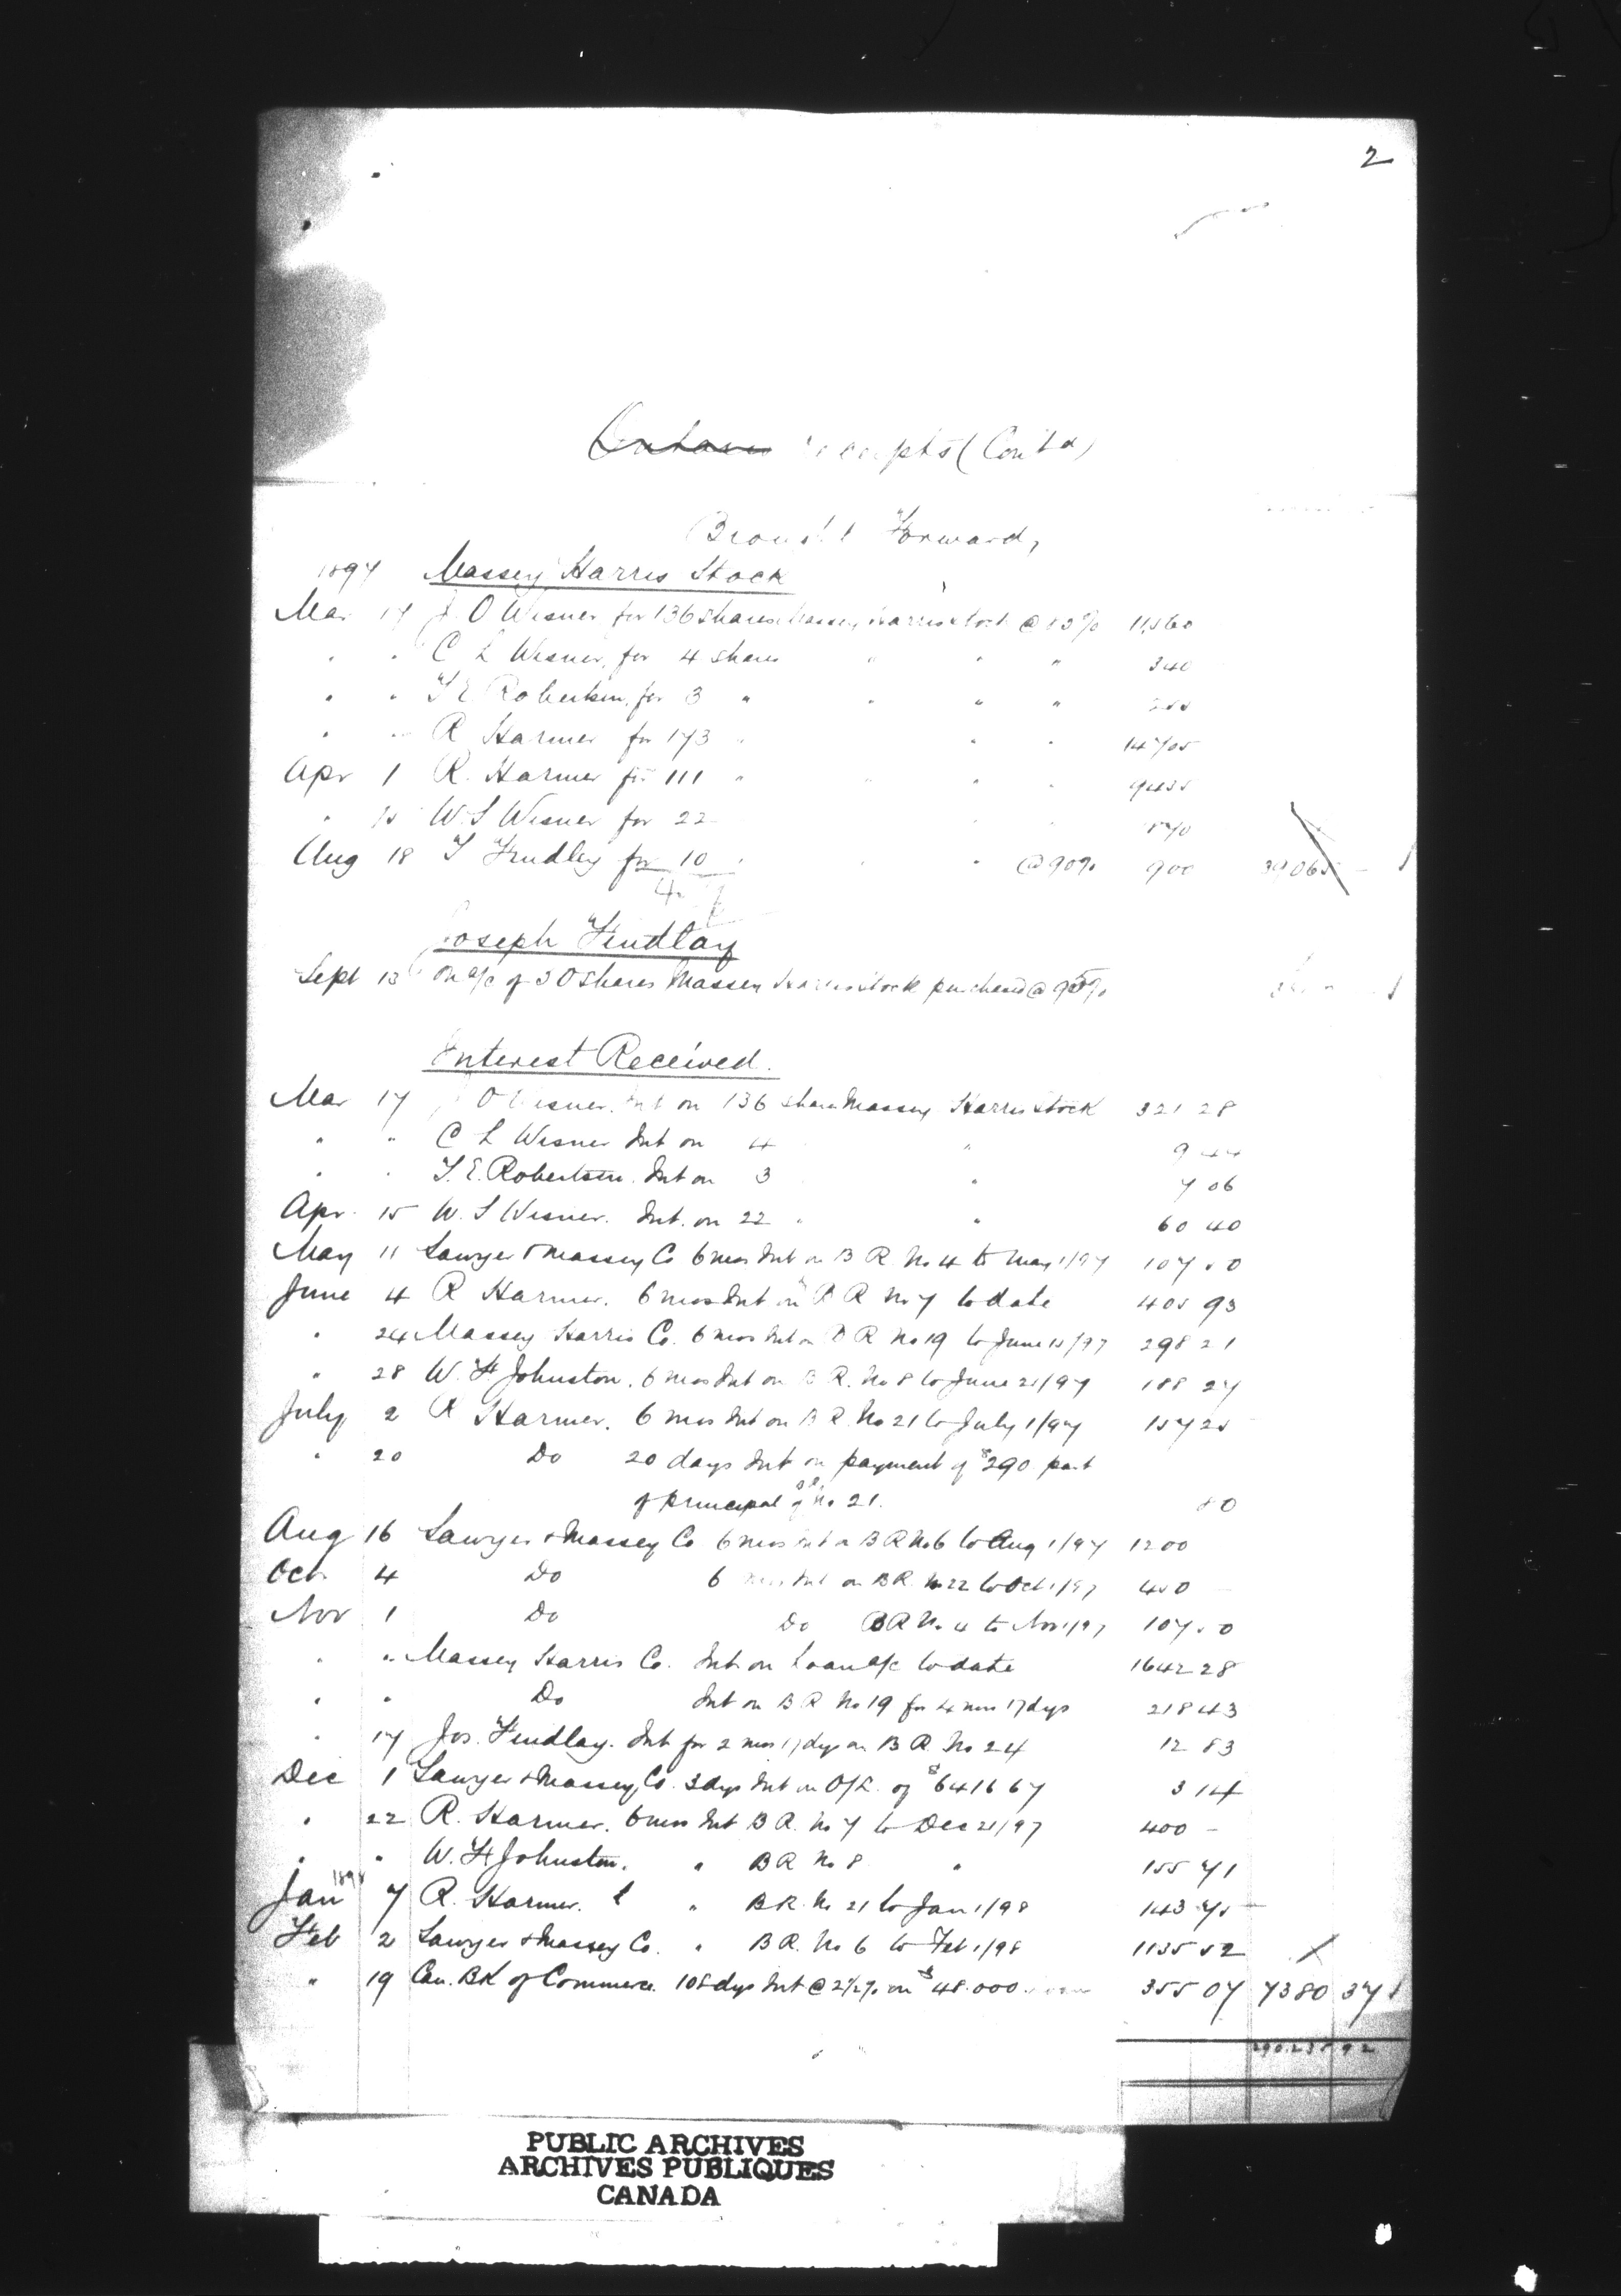 2
Ontario receipts (Cont'd)
Brought Forward,
1897 Massey Harris Stock
Mar 17 J. O Wisner for 136 shares Massey Harris stock @ 85% 11,560
" " C L Wisner, for 4 shares " " " 340
" " T. E. Robertson, for 3 " " " " 255
" " R Harmer for 173 " " " 14705
Apr 1 R. Harmer for 111 " " " " 9435
" 15 W. S Wisner for 22 " " 1870
Aug 18 J Findley for 10 " " " @ 90% 900 39065 -
Joseph Findlay
Sept 13 On a/c of 30 shares Massey Harris stock purchased @ 95%
Interest Received.
Mar 17 J O Wisner. Int on 136 share Massey Harris Stock 321 28
" " C L Wisner Int on 4 " 9 44
" " T. E. Robertson. Int on 3 " 7 06
Apr. 15 W. S Wisner. Int. on 22 " " 60 40
May 11 Sawyer & Massey Co 6 mos Int on B R No 4 to May 1/97 107 50
June 4 R Harmer. 6 mos Int on B R No 7 to date 405 93
" 24 Massey Harris Co. 6 mos Int on B R No 19 to June 15/97 298 21
" 28 W. H Johnston. 6 mos Int on B R. No 8 to June 21/97 188 27
July 2 R Harmer. 6 mos Int on B R. No 21 to July 1/97 157 25
" 20 Do 20 days Int on payment of $290 part
of principal of No 21. 80
Aug 16 Sawyer & Massey Co 6 mos Int on B R No 6 to Aug 1/97 1200
Oct 4 Do 6 mos Int on B R. No 22 to Oct 1/97 450 -
Nov 1 Do Do B R No 4 to Nov 1/97 107 50
" " Massey Harris Co. Int on Loan a/c to date 1642 28
" " Do Int on B R No 19 for 4 mos 17 dys 218 43
" 17 Jos. Findlay. Int for 2 mos 17 dys on B R. No 24 12 83
Dec 1 Sawyer & Massey Co. 3 dys Int on O/L. of $6416 67 3 14
" 22 R. Harmer. 6 mos Int B R. No 7 to Dec 21/97 400 -
" " W. H Johnston. " B R No 8 " 155 71
1898
Jan 7 R. Harmer. " B R. No 21 to Jan 1/98 143 75
Feb 2 Sawyer & Massey Co. " B R. No 6 to Feb 1/98 1135 52
" 19 Can. BK of Commerce. 108 dys Int @ 2½% on $48.000. 355 07 7380 37
290.235 92
PUBLIC ARCHIVES
ARCHIVES PUBLIQUES
CANADA